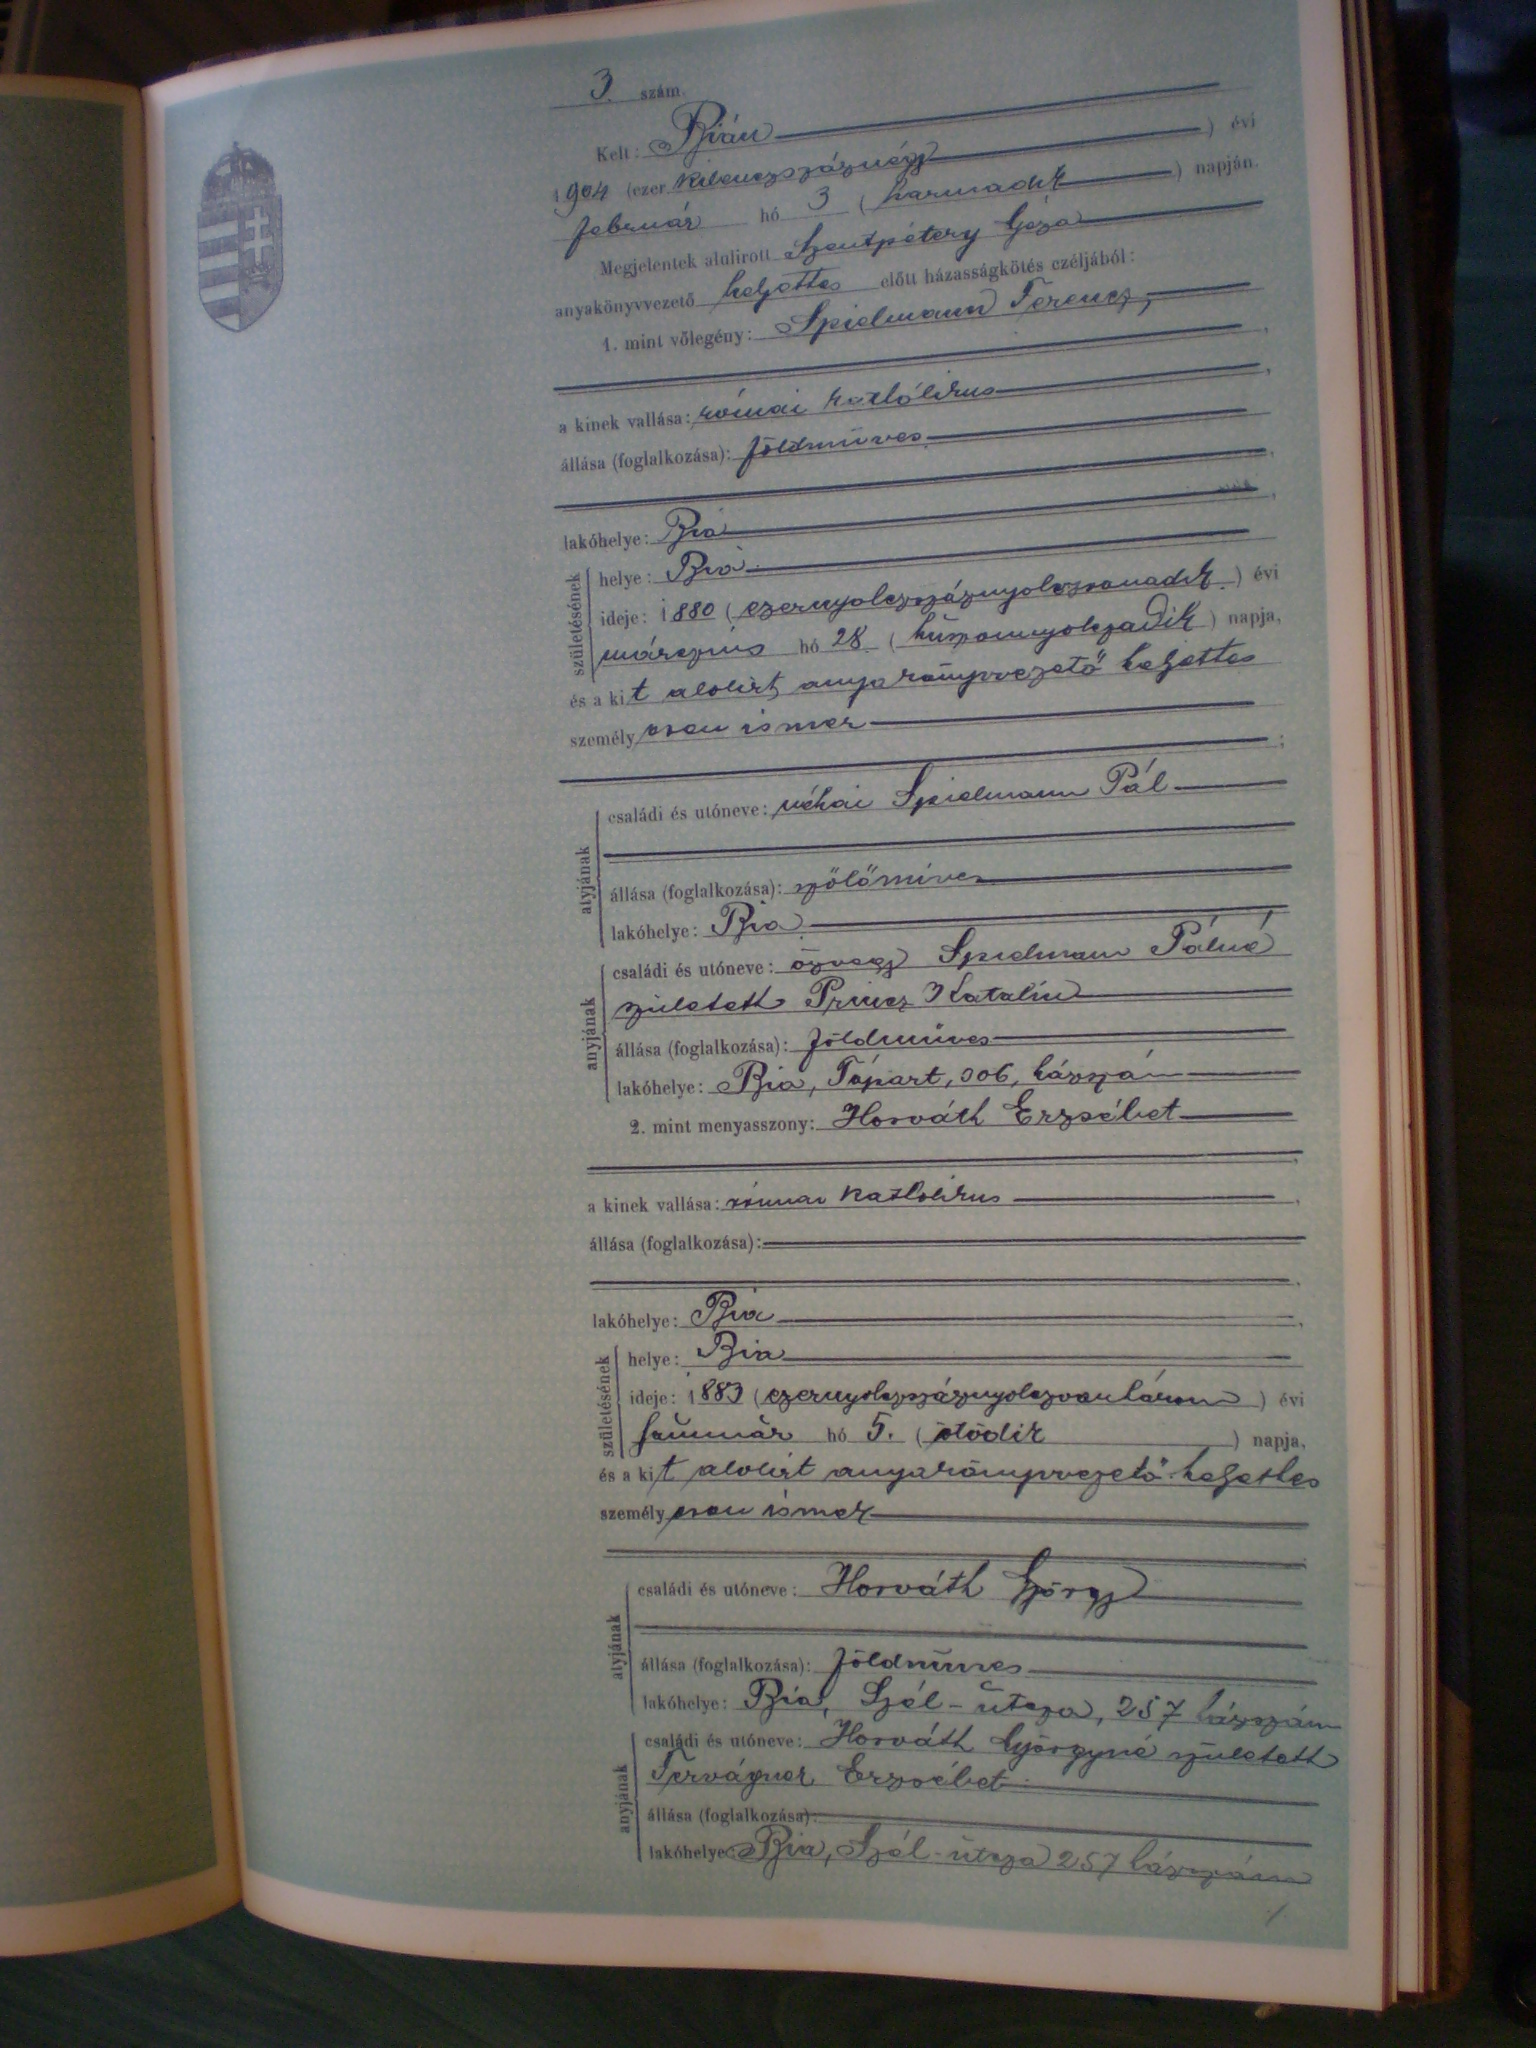 3. szám.
Kelt: Bián
1904 (ezer kilenczszáznégy) évi
február hó 3 (harmadik) napján.
Megjelentek alulirott Szentpétery Géza
anyakönyvvezető helyettes előtt házasságkötés czéljából:
1. mint vőlegény: Spielmann Ferencz,
a kinek vallása: római katholikus
állása (foglalkozása): földműves
lakóhelye: Bia
születésének
helye: Bia
ideje: 1880 (ezernyolczszáznyolczvanadik) évi
márczius hó 28. (huszonnyolczadik) napja,
és a kit alolirt anyakönyvvezető helyettes
személyesen ismer
atyjának
családi és utóneve: néhai Spielmann Pál
állása (foglalkozása): szőlőmíves
lakóhelye: Bia
anyjának
családi és utóneve: özvegy Spielmann Pálné
született Princz Katalin
állása (foglalkozása): földműves
lakóhelye: Bia, Tópart, 306, házszám
2. mint menyasszony: Horváth Erzsébet
a kinek vallása: római katholikus
állása (foglalkozása):
lakóhelye: Bia
születésének
helye: Bia
ideje: 1883 (ezernyolczszáznyolczvanhárom) évi
január hó 5. (ötödik) napja,
és a kit alolirt anyakönyvvezető helyettes
személyesen ismer
atyjának
családi és utóneve: Horváth György
állása (foglalkozása): földműves
lakóhelye: Bia, Szél-utcza, 257 házszám
anyjának
családi és utóneve: Horváth Györgyné született
Erzsébet
állása (foglalkozása):
lakóhelye: Bia, Szél-utcza 257 házszám